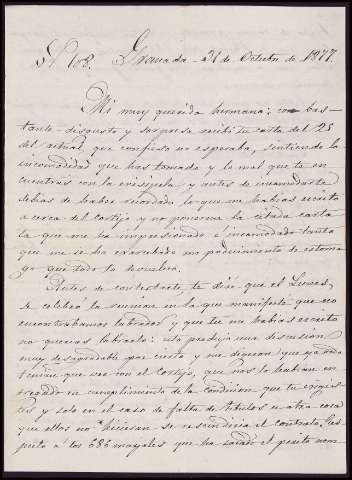 Granada 31 de Octubre de 1877.
Mi muy querida hermana: con bas-
tante disgusto y sorpresa recibí tu carta del 25
del actual, que confieso no esperaba, sintiendo la
incomodidad que has tomado y lo mal que te en-
cuentras con la erisipela y antes de incomodarte
debias de haber recordado lo que me habias escrito
acerca del cortijo y no ponerme la citada carta
la que me ha impresionado e incomodado tanto
que me se ha exacerbado mi padecimiento de estoma-
go que todo lo devuelvo.
Antes de contestarte, te diré que el Lunes
se celebró la reunion en la que manifesté que no
encontrabamos labrador y que tu me habias escrito
no querias labrarlo: esto produjo una discusion
muy desagradable por cierto y me dijeron que ya nada
tenian que ver con el cortijo, que nos lo habian en-
tregado en cumplimiento de la condicion que tu exigis-
tes y solo en el caso de falta de titulos u otra cosa
que ellos no hicieran se rescindiria el contrato. Res-
pecto a los 686 mayales que ha sacado el perito nom-